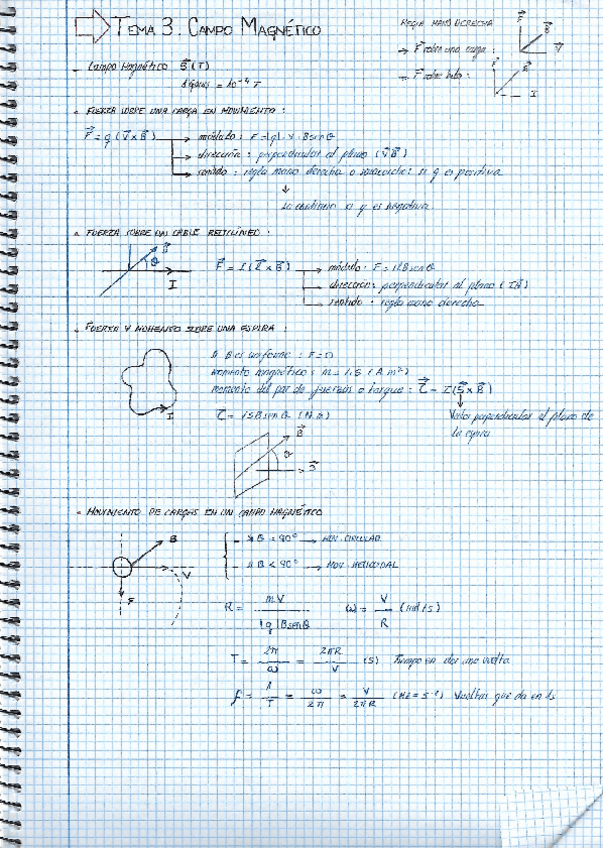 TEMA 3. CAMPO MAGNÉTICO
REGLA MANO DERECHA
→ F⃗ sobre una carga :
F⃗ B⃗ V⃗
→ F⃗ sobre hilo :
F⃗ B⃗ I
- Campo Magnético B⃗ (T)
1 Gauss = 10⁻⁴ T
• FUERZA SOBRE UNA CARGA EN MOVIMIENTO :
F⃗ = q (V⃗ x B⃗) → módulo : F = |q| · V · B senθ
→ dirección : perpendicular al plano (V⃗B⃗)
→ sentido : regla mano derecha o sacacorchos si q es positiva
↓
Lo contrario si q es negativa
• FUERZA SOBRE UN CABLE RECTILÍNEO :
B⃗ θ I
F⃗ = I (L⃗ x B⃗) → módulo : F = I l B senθ
→ dirección : perpendicular al plano
→ sentido : regla mano derecha
• FUERZA Y MOMENTO SOBRE UNA ESPIRA :
B es uniforme : F = 0
momento magnético : m = I · S (A m²)
momento del par de fuerzas o torque : τ⃗ = I (S⃗ x B⃗)
I
τ = I S B senθ (N m)
Vector perpendicular al plano de
la espira
B⃗ θ S⃗
• MOVIMIENTO DE CARGAS EN UN CAMPO MAGNÉTICO
B V F
- θ = 90° → MOV. CIRCULAR
- θ < 90° → MOV. HELICOIDAL
R = mV / |q| B senθ ω = V / R (rad/s)
T = 2π / ω = 2πR / V (s) Tiempo en dar una vuelta
f = 1 / T = ω / 2π = V / 2πR (Hz = s⁻¹) Vueltas que da en 1s